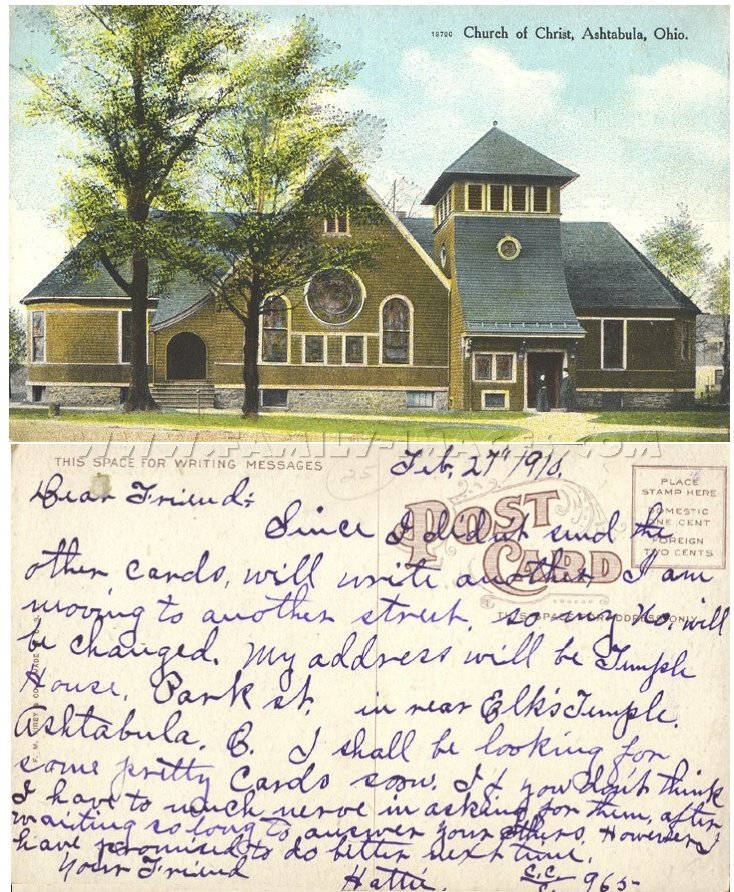 13790 Church of Christ, Ashtabula, Ohio.
WWW.FAMILY-IMAGES.COM
THIS SPACE FOR WRITING MESSAGES
Feb, 27" 1910.
25
PLACE
STAMP HERE
DOMESTIC
ONE CENT
FOREIGN
TWO CENTS
POST
CARD
THIS SPACE FOR ADDRESS ONLY
Dear Friend:
Since I didn't send the
other cards, will write another. I am
moving to another street, so my No. will
be changed. My address will be Temple
House, Park st. in rear Elk's Temple.
Ashtabula, O. I shall be looking for
some pretty cards soon. If you don't think
I have to much nerve in asking for them, after
waiting so long to answer your others. However I
have promised to do better next time.
Your Friend
Hattie.
C.C. 965